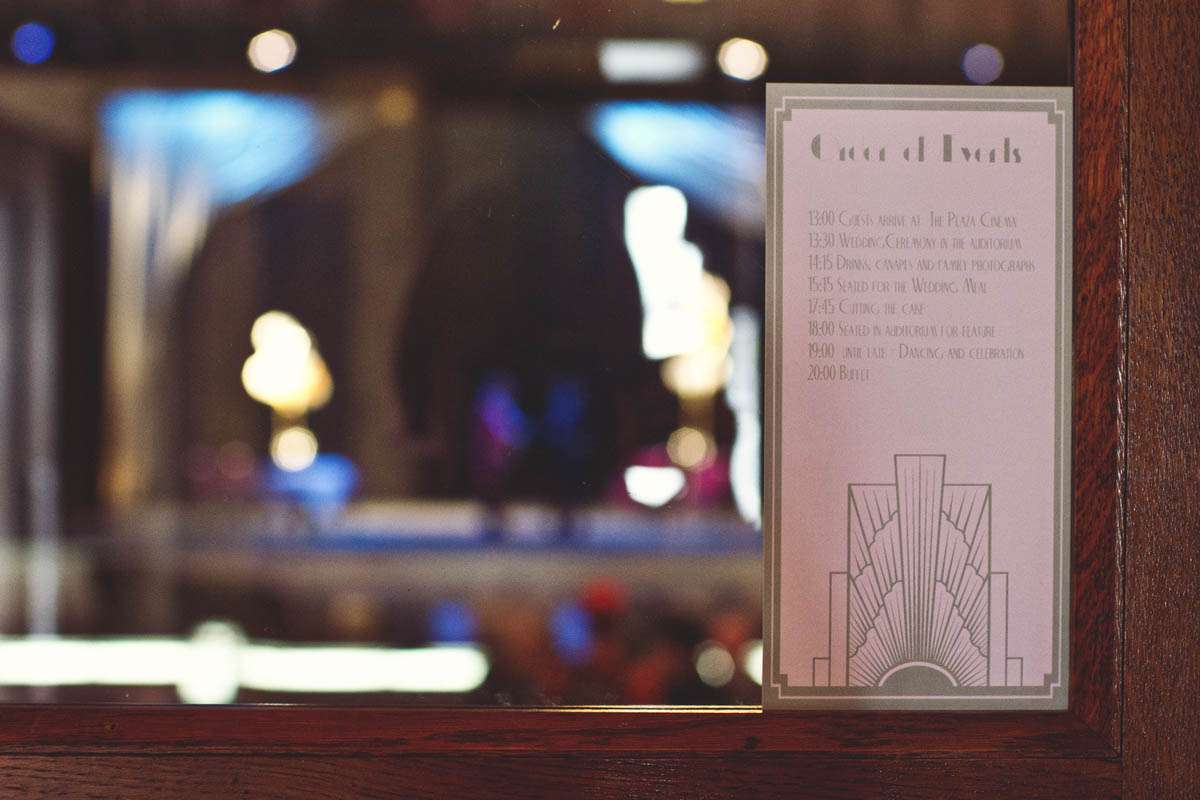 Order of Events
13:00 Guests arrive at The Plaza Cinema
13:30 Wedding Ceremony in the auditorium
14:15 Drinks, canapes and family photographs
15:15 Seated for the Wedding Meal
17:45 Cutting the cake
18:00 Seated in auditorium for feature
19:00 until late - Dancing and celebration
20:00 Buffet